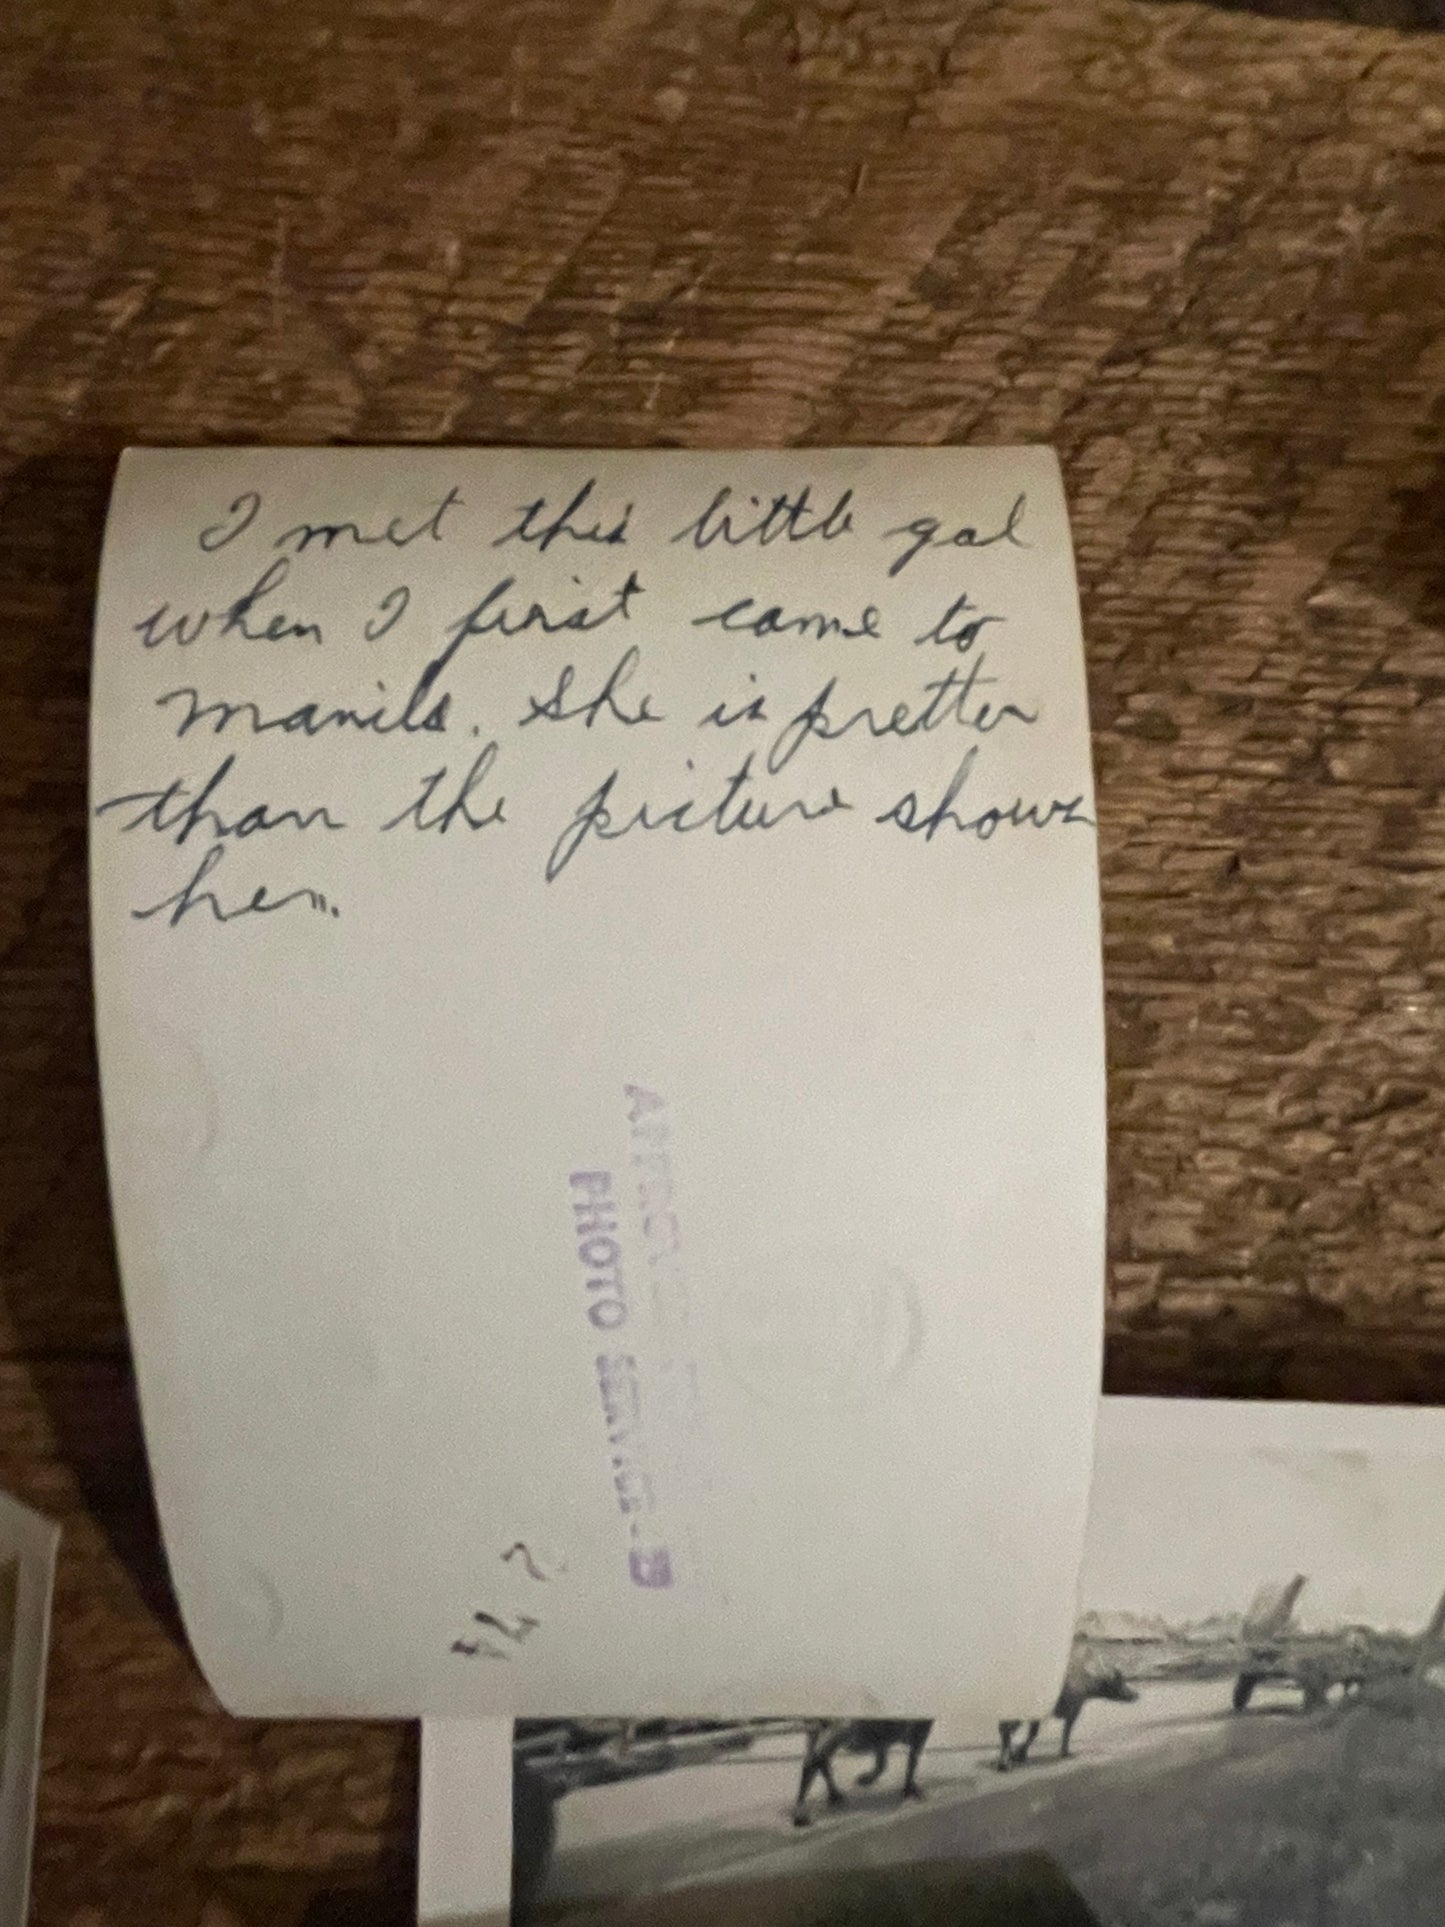 I met this little gal
when I first came to
manila. She is pretter
than the picture shows
her.
PHOTO
74